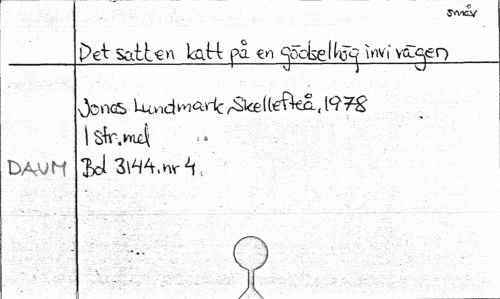 småv
Det satt en katt på en gödselhög invi vägen
Jonas Lundmark, Skellefteå, 1978
1 str. mel
DAUM Bd 3144. nr 4.